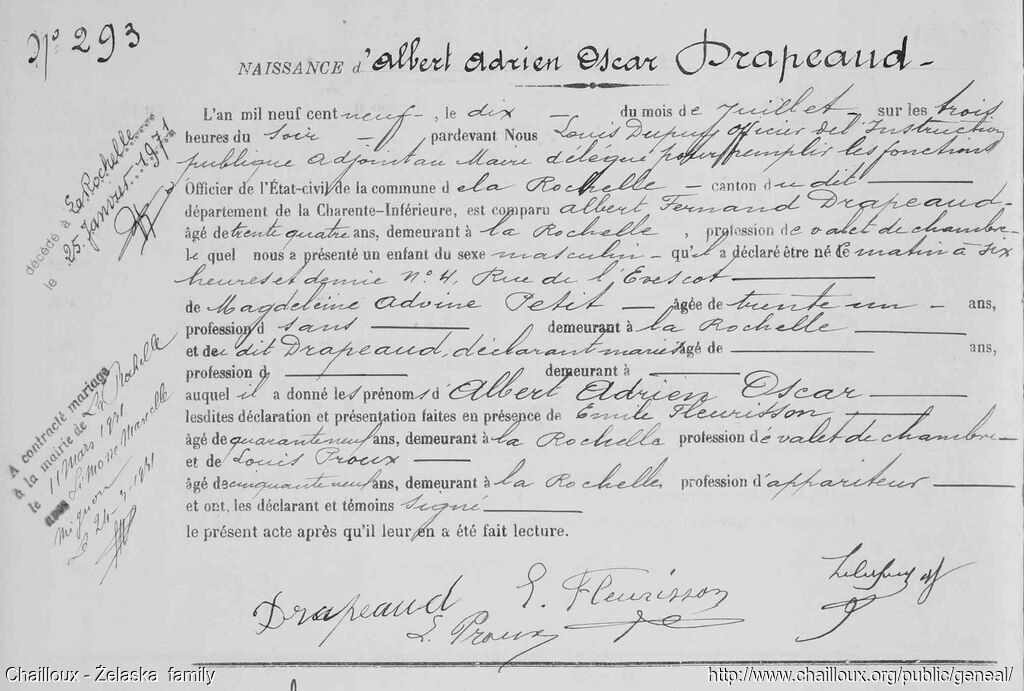 N° 293
NAISSANCE d'Albert Adrien Oscar Drapeaud
L'an mil neuf cent neuf, le dix du mois de Juillet sur les trois
heures du Soir pardevant Nous Louis Dupuy officier de l'Instruction
publique adjoint au Maire délégué pour remplir les fonctions
Officier de l'État-civil de la commune de la Rochelle canton du dit
département de la Charente-Inférieure, est comparu Albert Fernand Drapeaud
âgé de trente quatre ans, demeurant à la Rochelle, profession de valet de chambre
le quel nous a présenté un enfant du sexe masculin qu'il a déclaré être né ce matin à Six
heures et demie N° 4, Rue de l'Evescot
de Magdeleine Advine Petit âgée de trente un ans,
profession d sans demeurant à la Rochelle
et du dit Drapeaud, déclarant mariés âgé de ans,
profession d demeurant à
auquel il a donné les prénoms d'Albert Adrien Oscar
lesdites déclaration et présentation faites en présence de Emile Fleurisson
âgé de quarante neuf ans, demeurant à la Rochelle profession de valet de chambre
et de Louis Proux
âgé de cinquante neuf ans, demeurant à la Rochelle, profession d'appariteur
et ont, les déclarant et témoins signé
le présent acte après qu'il leur en a été fait lecture.
Drapeaud E. Fleurisson
L. Proux
décédé à La Rochelle
le 25 Janvier 1971
A contracté mariage
à la mairie de La Rochelle
le 11 Mars 1931
avec Simone Marcelle
Mignon
Le 24-3-1931
Chailloux - Żelaska family
http://www.chailloux.org/public/geneal/